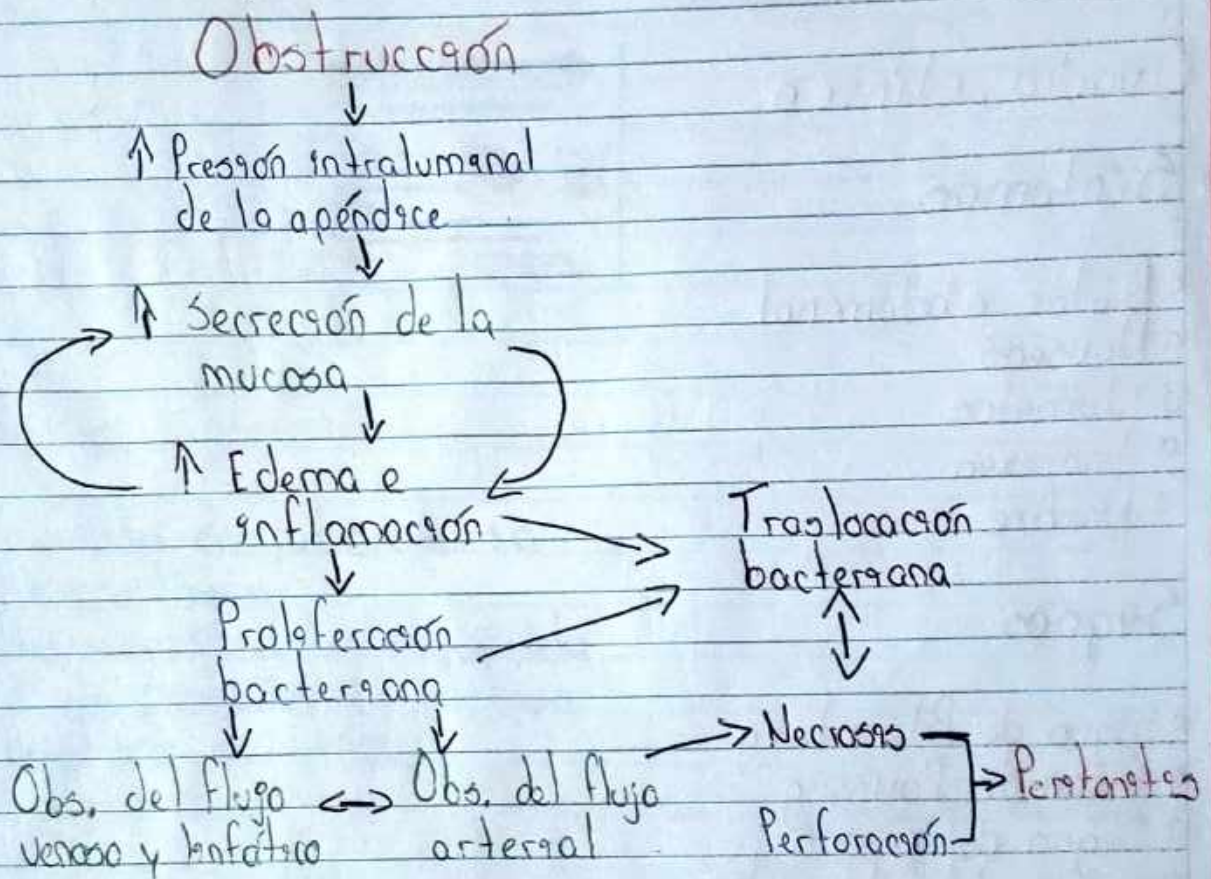 Obstrucción
↑ Presión intralumenal
de la apéndice
↑ Secreción de la
mucosa
↑ Edema e
inflamación
Traslocación
bacteriana
Proliferación
bacteriana
Necrosis
Obs. del flujo
venoso y linfático
Obs. del flujo
arterial
Perforación
Peritonitis